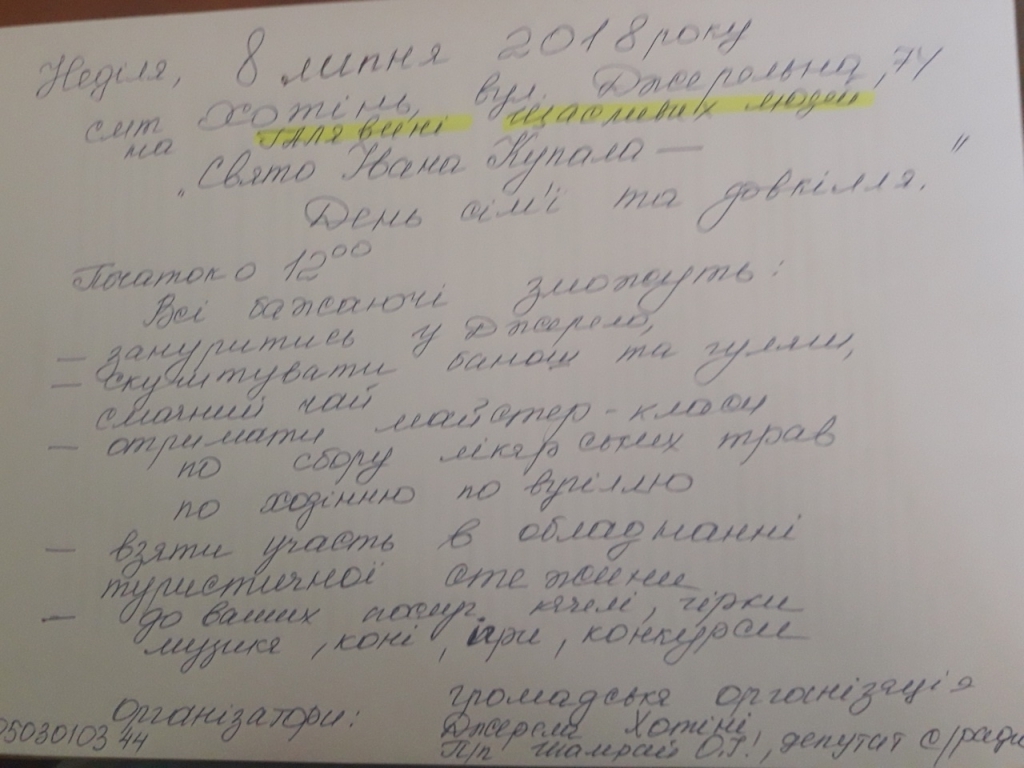 Неділя, 8 липня 2018 року
смт Хотінь, вул. Джерельна, 74
на галявині щасливих людей
„Свято Івана Купала —
День сім'ї та довкілля.”
Початок о 12⁰⁰
Всі бажаючі зможуть:
— зануритись у Джерело,
— скуштувати банош та гуляш,
смачний чай
— отримати майстер-класи
по збору лікарських трав
по ходінню по вугіллю
— взяти участь в обладнанні
туристичної стежини
— до ваших послуг качелі, гірки
музика, коні, ігри, конкурси
Організатори: громадська організація
Джерела Хотіні
П/п Шамрай О.Г., депутат с/ради
0503010344